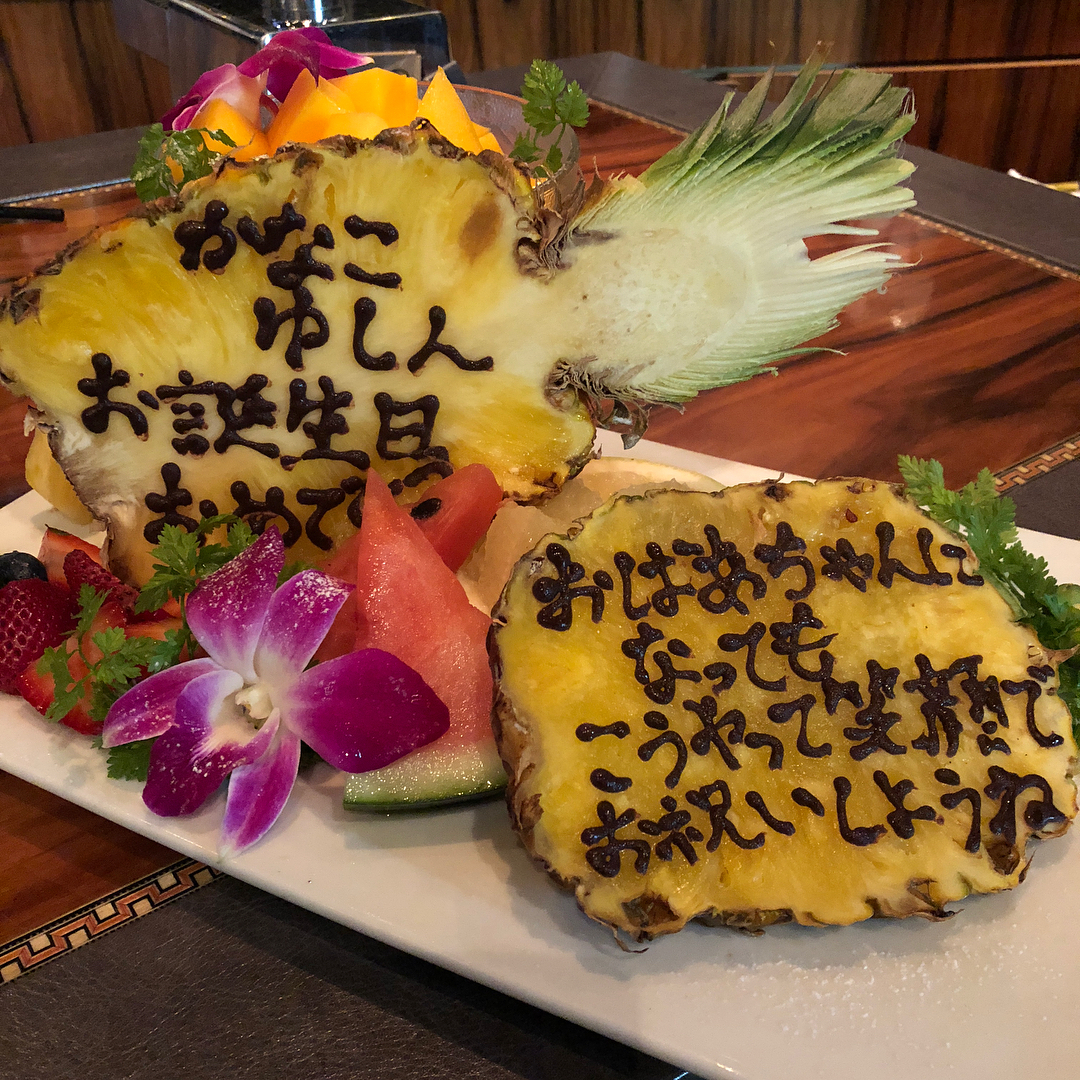 かなこ
ゆしん
お誕生日
おめで
おばあちゃんに
なっても
こうやって笑顔で
お祝いしようね